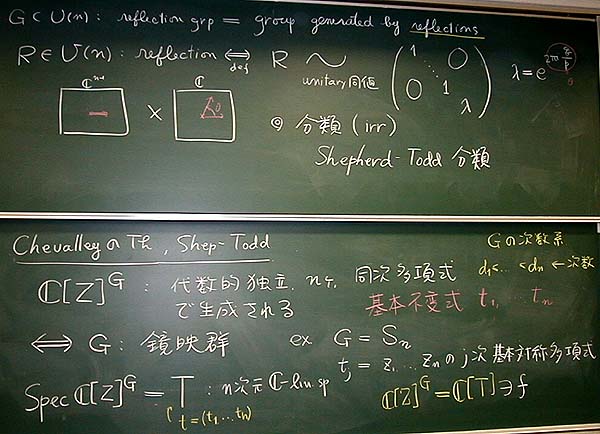 G ⊂ U(n) : reflection grp = group generated by reflections
R ∈ U(n) : reflection ⇔ def R ~ unitary 同値 (1 ⋱ 1 λ, 0, 0) λ = e^{2πi q/p}
ℂ^{n-1} × ℂ θ
◎ 分類 (irr)
Shepherd-Todd 分類
Chevalley の Th, Shep-Todd
Gの次数系
d₁≤…≤dₙ ← 次数
ℂ[Z]^G : 代数的独立, nケ, 同次多項式
で生成される
基本不変式 t₁, … tₙ
⇔ G : 鏡映群
ex G = Sₙ
tⱼ = z₁…zₙ の j次 基本対称多項式
Spec ℂ[Z]^G = T : n次元 ℂ-lin. sp
t = (t₁…tₙ)
ℂ[Z]^G = ℂ[T] ∋ f